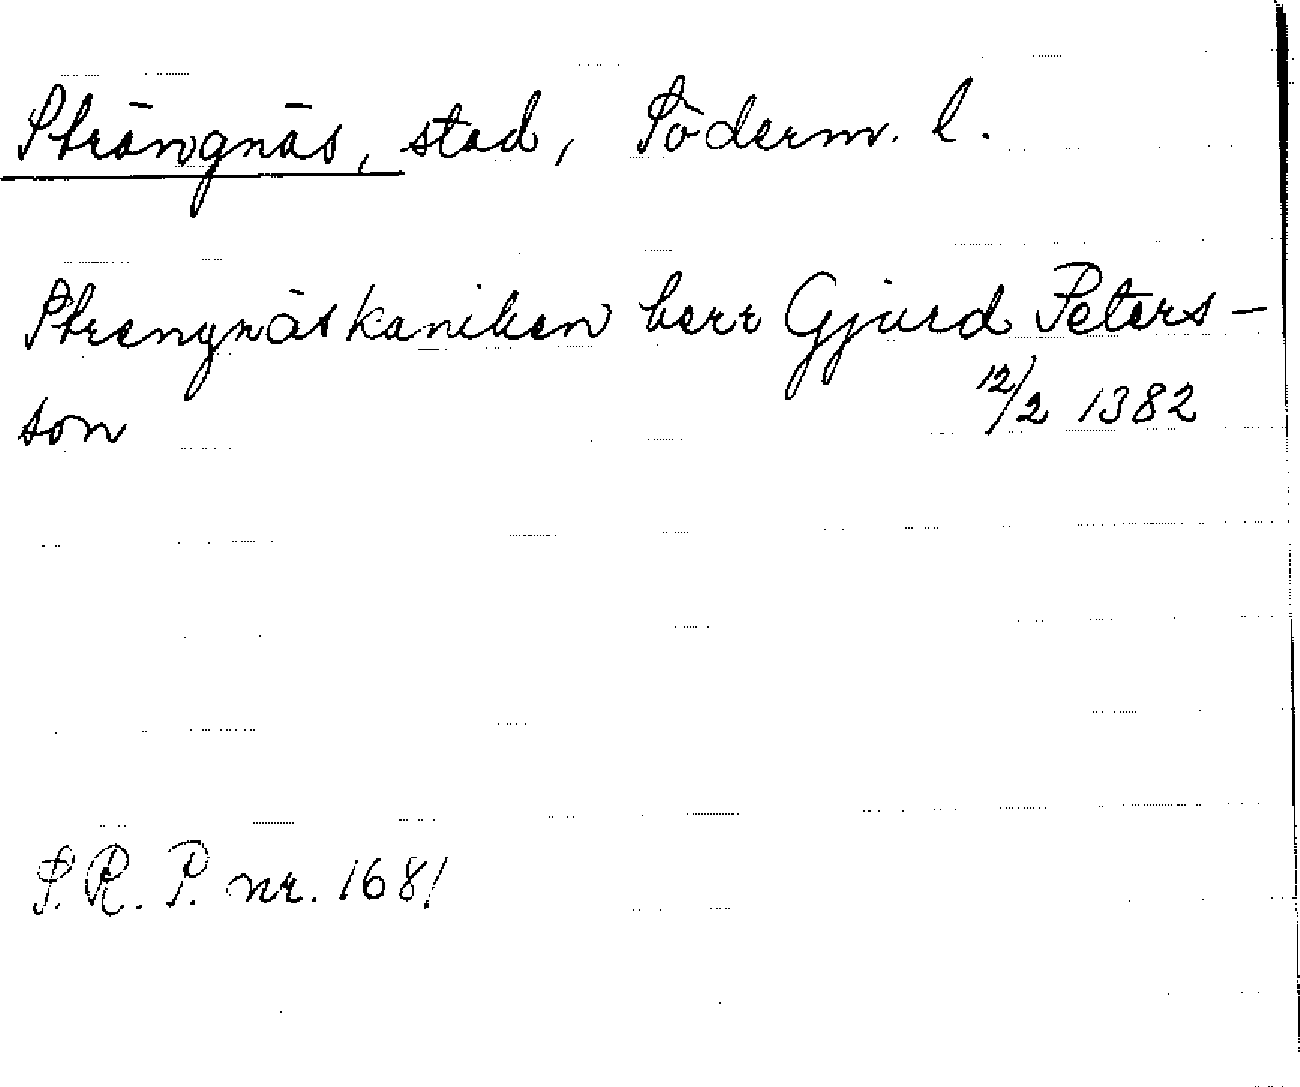 Strängnäs, stad, Söderm. l.
Strengnäskaniken herr Gjurd Peters-
son 12/2 1382
S.R.P. nr. 1681